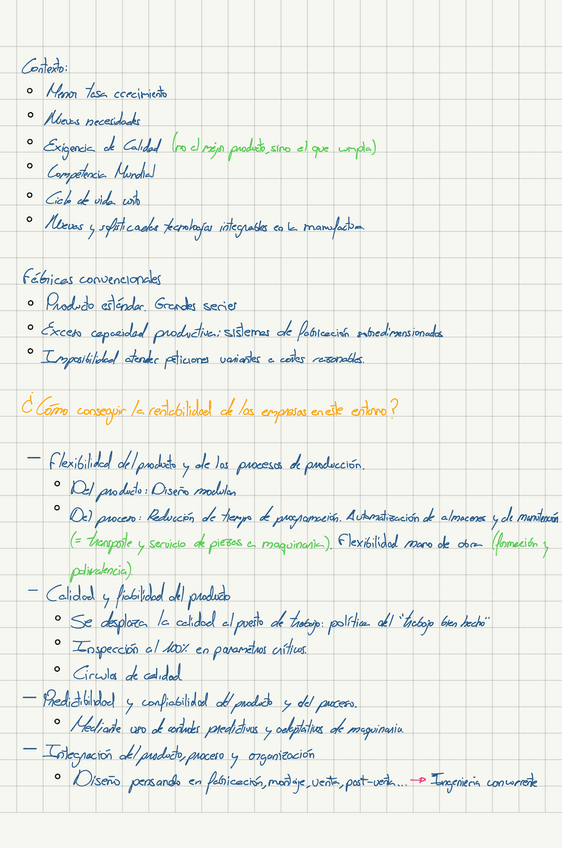 Contexto:
Menor tasa crecimiento
Nuevas necesidades
Exigencia de Calidad (no el mejor producto, sino el que cumpla)
Competencia Mundial
Ciclo de vida corto
Nuevas y sofisticadas tecnologías integrables en la manufactura
Fábricas convencionales
Producto estándar. Grandes series
Exceso capacidad productiva: sistemas de fabricación sobredimensionados
Imposibilidad atender peticiones variantes a costes razonables.
¿Cómo conseguir la rentabilidad de las empresas en este entorno?
— Flexibilidad del producto y de los procesos de producción.
Del producto: Diseño modular
Del proceso: Reducción de tiempo de programación. Automatización de almacenes y de manutención
(= transporte y servicio de piezas a maquinaria). Flexibilidad mano de obra (formación y
polivalencia)
— Calidad y fiabilidad del producto
Se desplaza la calidad al puesto de trabajo: política del "trabajo bien hecho"
Inspección al 100% en parámetros críticos.
Círculos de calidad
— Predictibilidad y confiabilidad del producto y del proceso.
Mediante uso de controles predictivos y adaptativos de maquinaria.
— Integración del producto, proceso y organización
Diseño pensando en fabricación, montaje, venta, post-venta... → Ingeniería concurrente